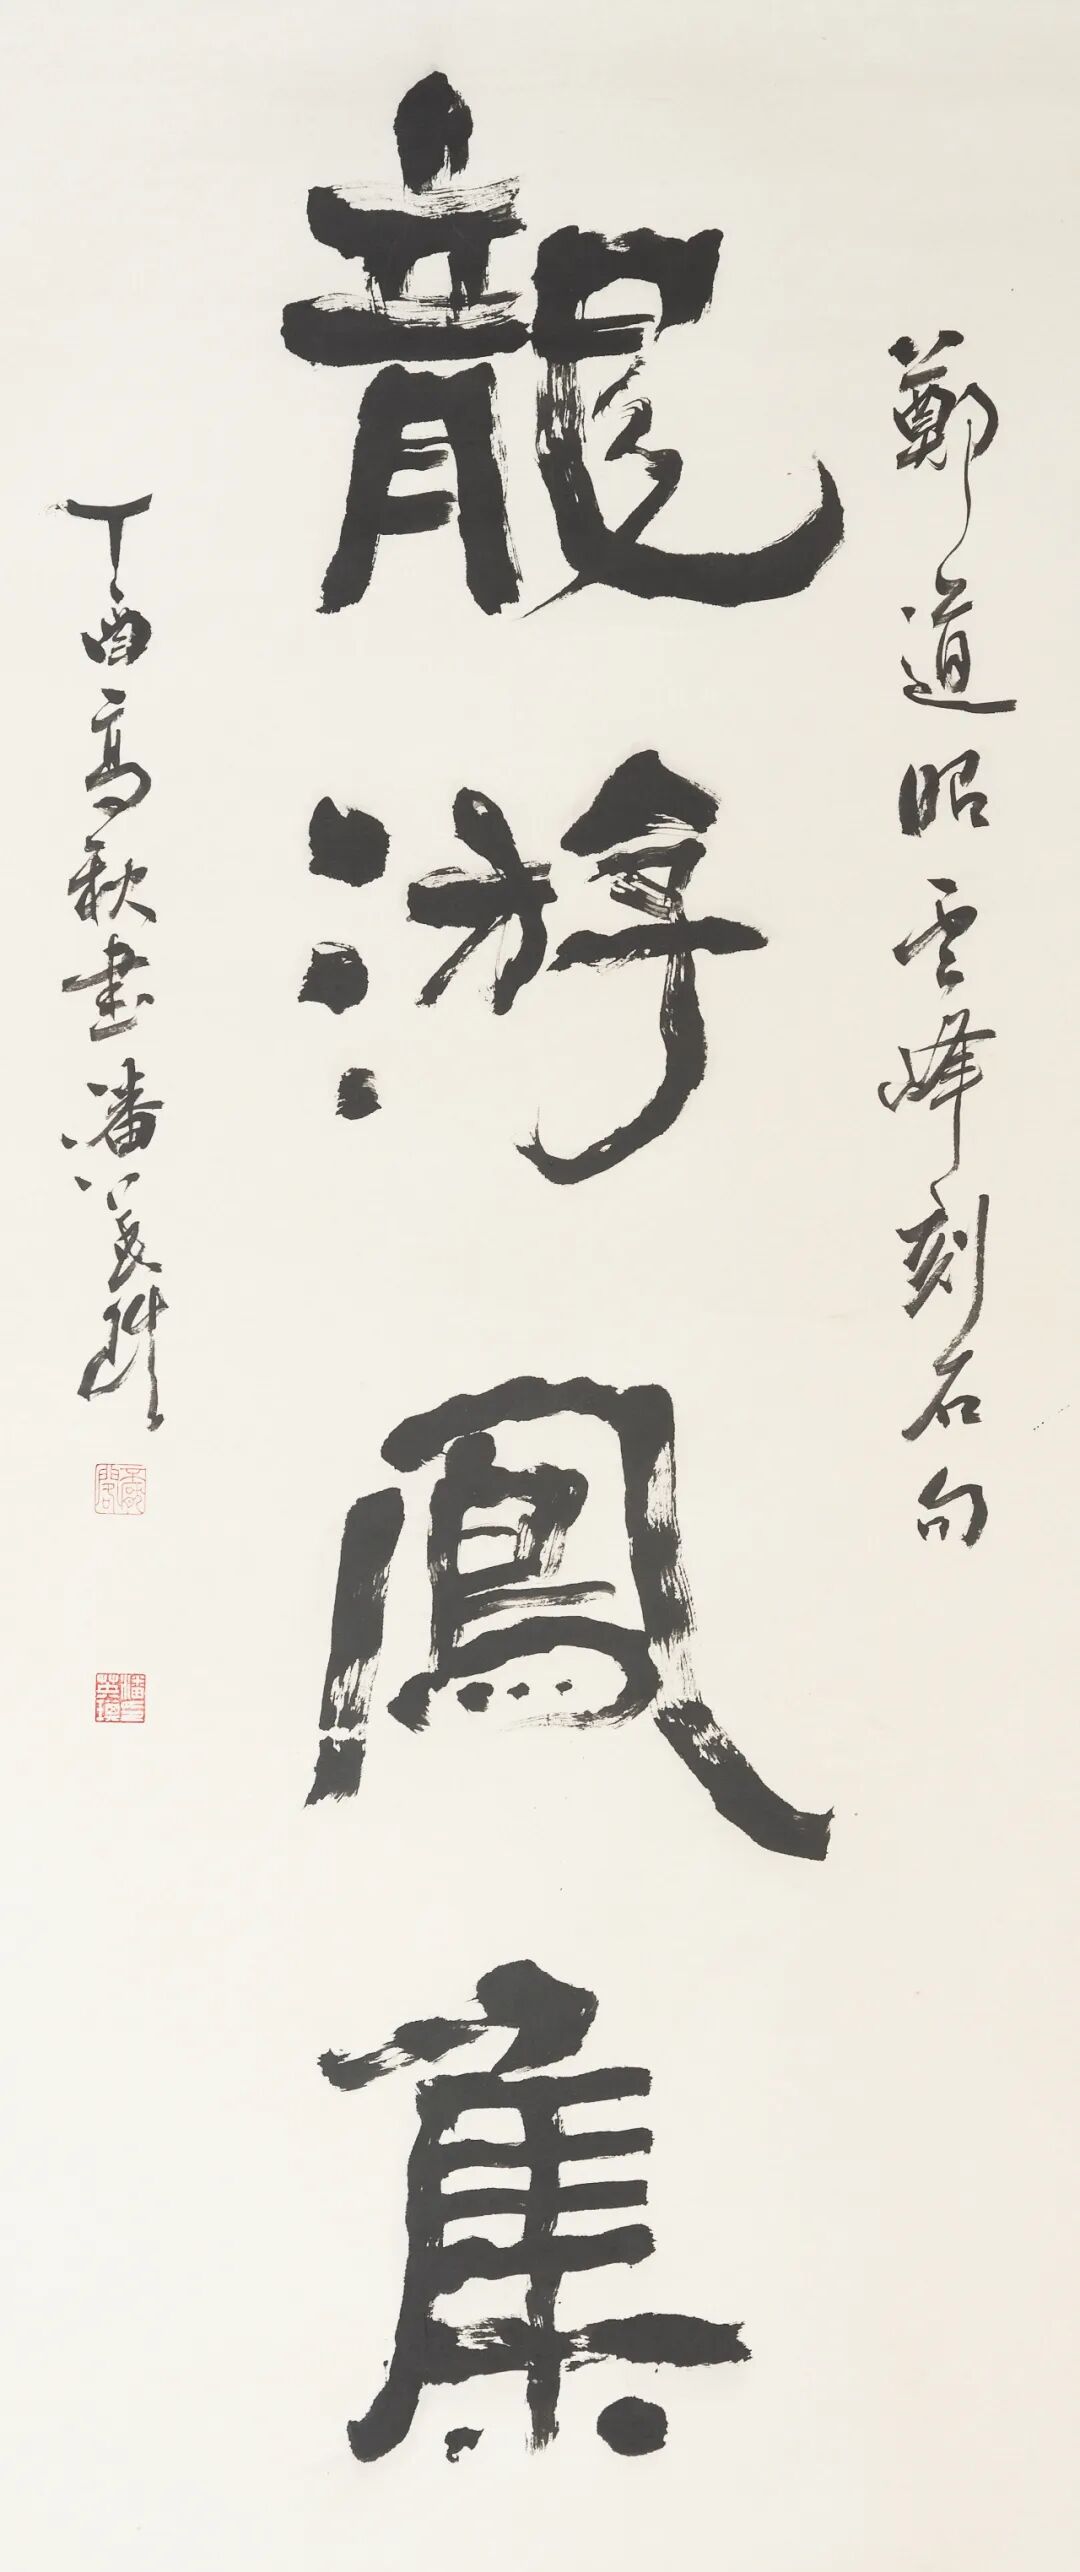 鄭道昭雲峰刻石句
龍游鳳集
丁酉高秋書潘